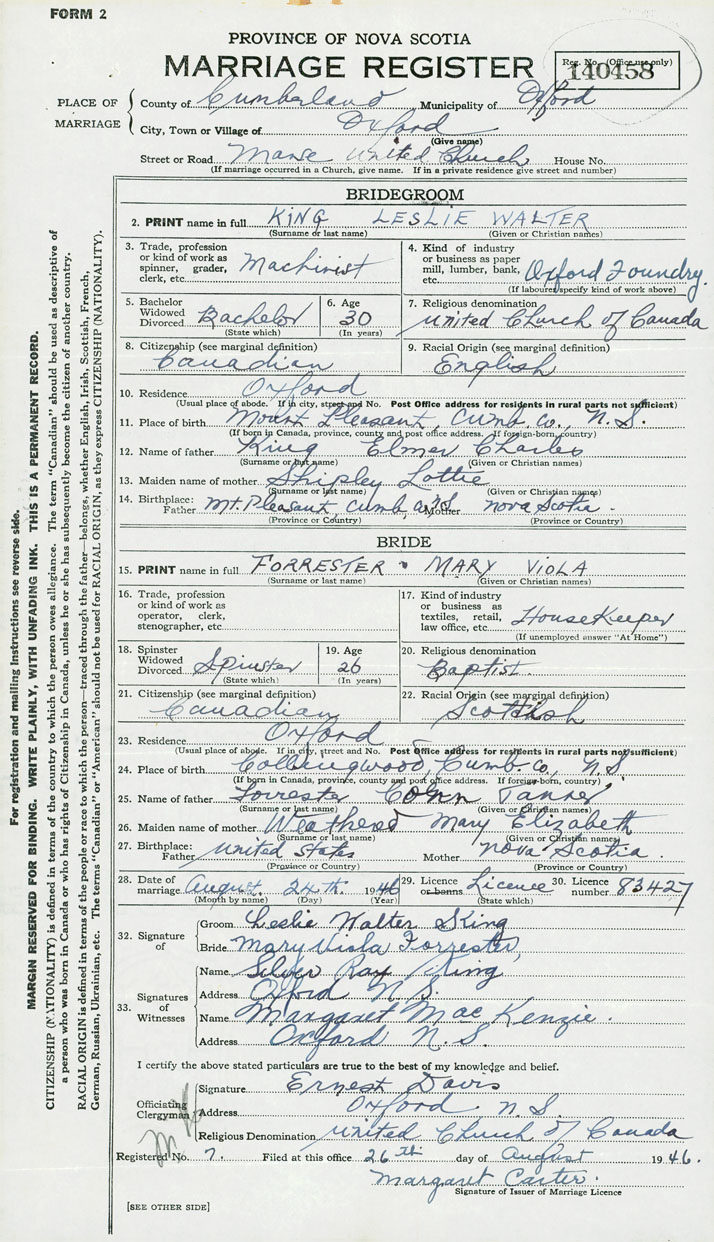 FORM 2
PROVINCE OF NOVA SCOTIA
MARRIAGE REGISTER
Reg. No. (Office use only)
140458
PLACE OF MARRIAGE
County of Cumberland Municipality of Oxford
City, Town or Village of Oxford
(Give name)
Street or Road Manse United Church House No.
(If marriage occurred in a Church, give name. If in a private residence give street and number)
BRIDEGROOM
2. PRINT name in full KING LESLIE WALTER
(Surname or last name) (Given or Christian names)
3. Trade, profession or kind of work as spinner, grader, clerk, etc. Machinist
4. Kind of industry or business as paper mill, lumber, bank, etc. Oxford Foundry.
(If labourer specify kind of work above)
5. Bachelor Widowed Divorced Bachelor
(State which)
6. Age 30
(In years)
7. Religious denomination
United Church of Canada
8. Citizenship (see marginal definition)
Canadian
9. Racial Origin (see marginal definition)
English
10. Residence Oxford
(Usual place of abode. If in city, street and No. Post Office address for residents in rural parts not sufficient)
11. Place of birth Mount Pleasant, Cumb. Co., N.S.
(If born in Canada, province, county and post office address. If foreign-born, country)
12. Name of father King Elmer Charles
(Surname or last name) (Given or Christian names)
13. Maiden name of mother Shipley Lottie
(Surname or last name) (Given or Christian names)
14. Birthplace: Father Mt. Pleasant Cumb. N.S. Mother Nova Scotia.
(Province or Country) (Province or Country)
BRIDE
15. PRINT name in full FORRESTER MARY VIOLA
(Surname or last name) (Given or Christian names)
16. Trade, profession or kind of work as operator, clerk, stenographer, etc.
17. Kind of industry or business as textiles, retail, law office, etc. HouseKeeper
(If unemployed answer "At Home")
18. Spinster Widowed Divorced Spinster
(State which)
19. Age 26
(In years)
20. Religious denomination
Baptist.
21. Citizenship (see marginal definition)
Canadian
22. Racial Origin (see marginal definition)
Scottish
23. Residence Oxford
(Usual place of abode. If in city, street and No. Post Office address for residents in rural parts not sufficient)
24. Place of birth Collingwood, Cumb. Co., N.S.
(If born in Canada, province, county and post office address. If foreign-born, country)
25. Name of father Forrester Tanner
(Surname or last name) (Given or Christian names)
26. Maiden name of mother Mary Elizabeth
(Surname or last name) (Given or Christian names)
27. Birthplace: Father United States Mother Nova Scotia.
(Province or Country) (Province or Country)
28. Date of marriage August 24th. 1946
(Month by name) (Day) (Year)
29. Licence or banns Licence
(State which)
30. Licence number 83427
32. Signature of
Groom Leslie Walter King
Bride Mary Viola Forrester
33. Signatures of Witnesses
Name Silver Ray King
Address Oxford N.S.
Name Margaret MacKenzie.
Address Oxford N.S.
I certify the above stated particulars are true to the best of my knowledge and belief.
Officiating Clergyman
Signature Ernest Davis
Address Oxford N.S.
Religious Denomination United Church of Canada
Registered No. 7. Filed at this office 26th day of August 1946.
Margaret Carter.
Signature of Issuer of Marriage Licence
[SEE OTHER SIDE]
For registration and mailing instructions see reverse side.
MARGIN RESERVED FOR BINDING. WRITE PLAINLY, WITH UNFADING INK. THIS IS A PERMANENT RECORD.
CITIZENSHIP (NATIONALITY) is defined in terms of the country to which the person owes allegiance. The term "Canadian" should be used as descriptive of
a person who was born in Canada or who has rights of Citizenship in Canada, unless he or she has subsequently become the citizen of another country.
RACIAL ORIGIN is defined in terms of the people or race to which the person—traced through the father—belongs, whether English, Irish, Scottish, French,
German, Russian, Ukrainian, etc. The terms "Canadian" or "American" should not be used for RACIAL ORIGIN, as they express CITIZENSHIP (NATIONALITY).